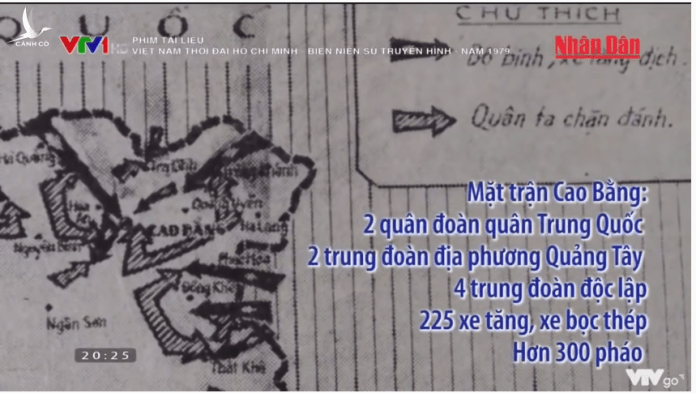 QUỐC
CHÚ THÍCH
CÁNH CÒ
VTV1 HD
PHIM TÀI LIỆU
VIỆT NAM THỜI ĐẠI HỒ CHÍ MINH - BIÊN NIÊN SỬ TRUYỀN HÌNH - NĂM 1979
Nhân Dân
Bộ binh, xe tăng địch.
Quân ta chặn đánh.
Hà Quảng
Trà Lĩnh
Trùng Khánh
Hòa An
Quảng Uyên
CAO BẰNG
Hạ Lang
Nguyên Bình
Phục Hòa
Đông Khê
Ngân Sơn
Thất Khê
Mặt trận Cao Bằng:
2 quân đoàn quân Trung Quốc
2 trung đoàn địa phương Quảng Tây
4 trung đoàn độc lập
225 xe tăng, xe bọc thép
Hơn 300 pháo
20:25
VTVgo